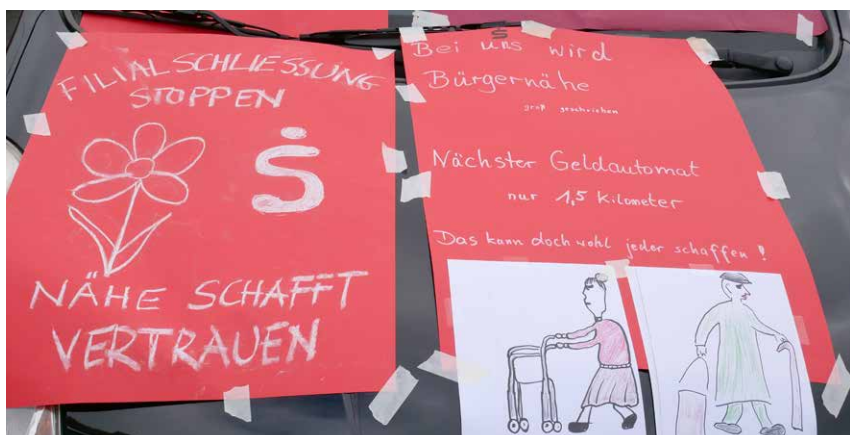 FILIALSCHLIESSUNG
STOPPEN
NÄHE SCHAFFT
VERTRAUEN
Bei uns wird
Bürgernähe
groß geschrieben
Nächster Geldautomat
nur 1,5 Kilometer
Das kann doch wohl jeder schaffen !